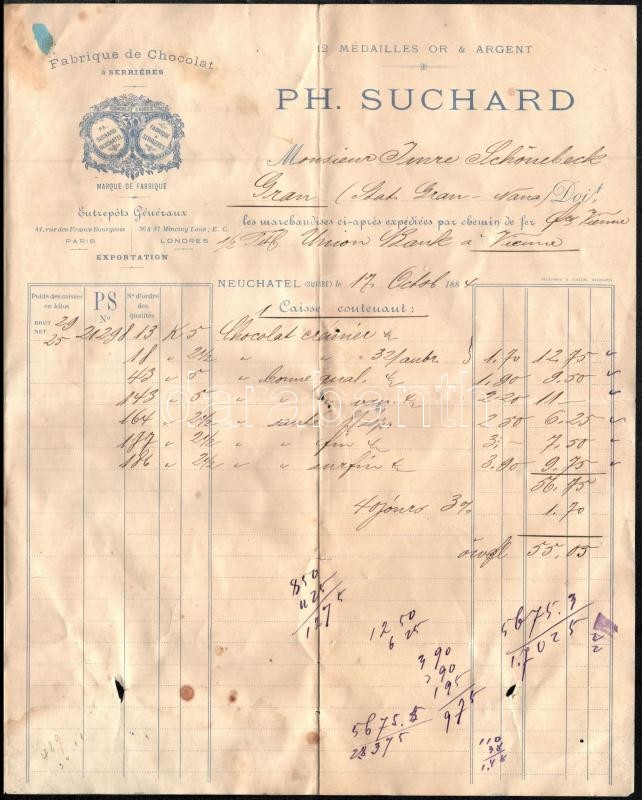 Fabrique de Chocolat
à SERRIÈRES
12 MÉDAILLES OR & ARGENT
PH. SUCHARD
PH. SUCHARD NEUCHATEL
FABRIQUE à SERRIÈRES
MARQUE DE FABRIQUE
Monsieur Imre Schönebeck
Gran (Stat. Gran-Nana) Doit
Entrepôts Généraux
41, rue des Francs Bourgeois 36 & 37 Mincing Lane; E. C.
PARIS LONDRES
EXPORTATION
les marchandises ci-après expédiées par chemin de fer
Union Bank à Vienne
NEUCHATEL (SUISSE) le 12 Octob 1884
Poids des caisses en kilos PS No N° d'ordre des qualités
1 Caisse contenant:
BRUT 29
NET 25
21298.13 K 5 Chocolat
18 " 2½ " " 1.70 12.75
43 " 5 " bonne qual. 1.90 9.50
143 " 5 " " 2.20 11.—
164 " 2½ " 2.50 6.25
177 " 2½ " " fin 3.— 7.50
186 " 2½ " " surfin 3.90 9.75
56.75
40 jours 3% 1.70
55.05
850
425
1275
1250
625
390
390
195
975
5675.3
1.7025
5675.5
28375
110
38
1.48
darabanth